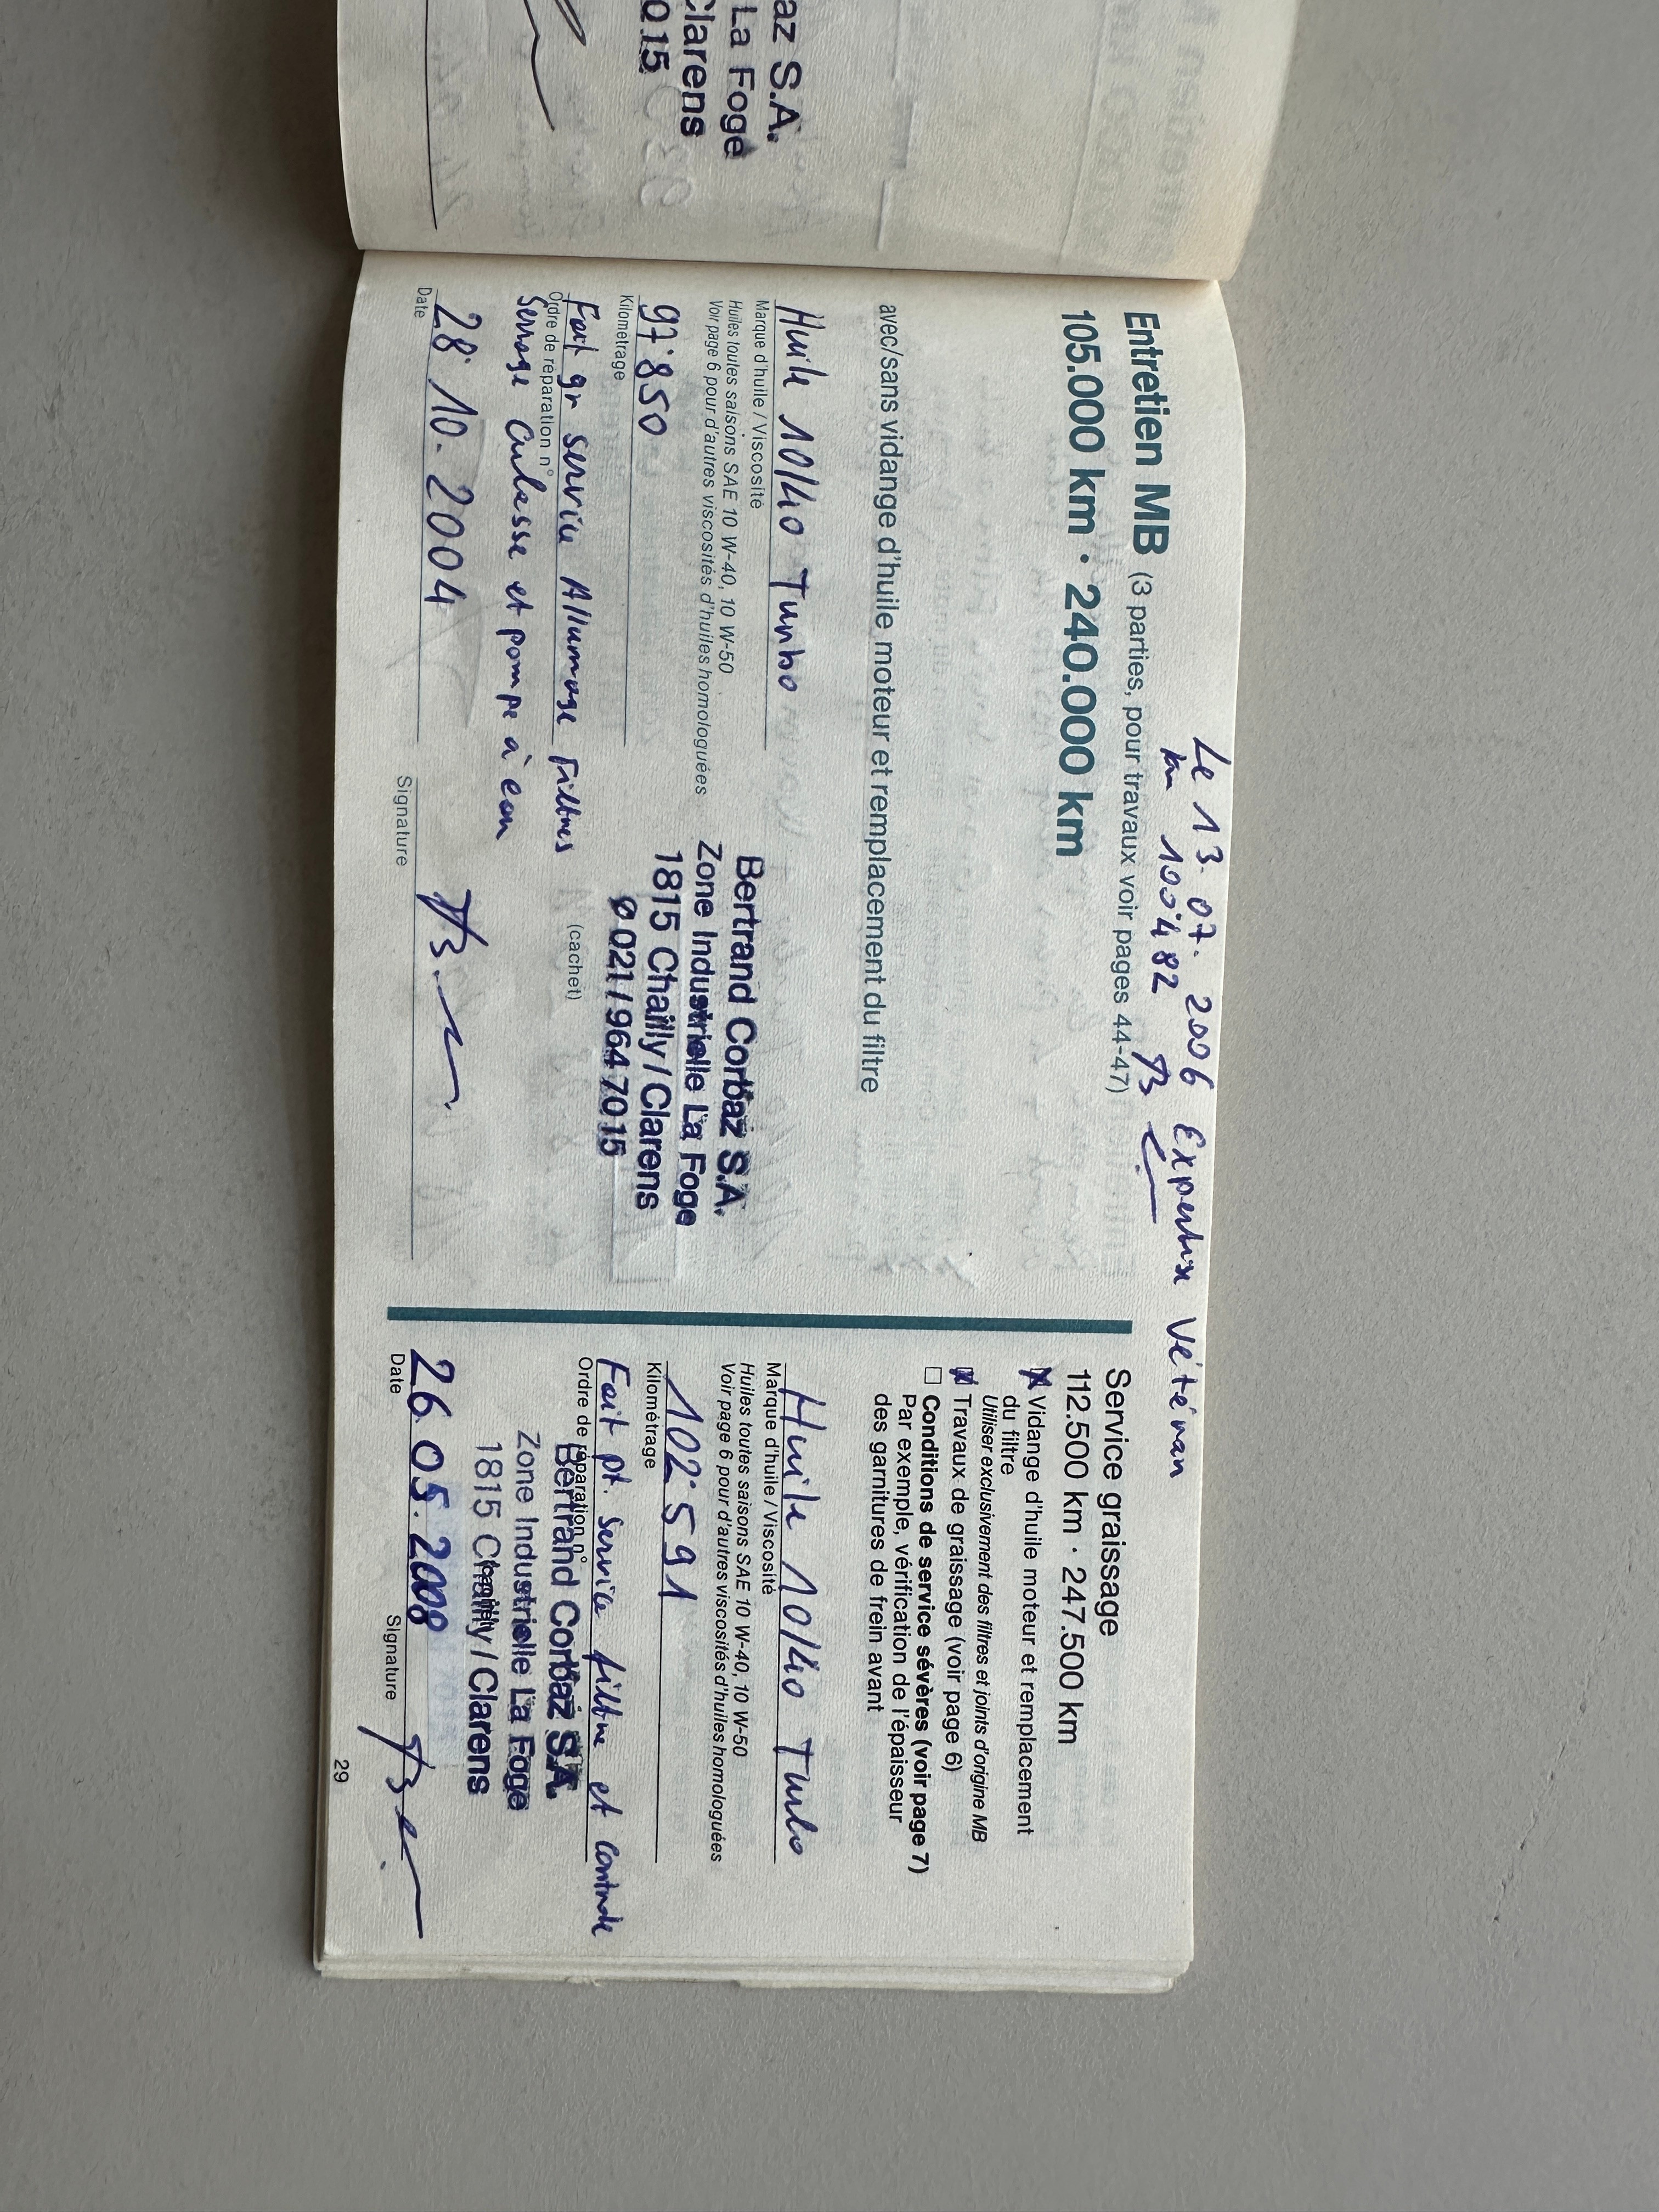 az S.A.
La Foge
Clarens
015
Le 13.07.2006 Expertise Vétéran
km 100'482
Entretien MB (3 parties, pour travaux voir pages 44-47)
105.000 km · 240.000 km
avec/sans vidange d'huile moteur et remplacement du filtre
Huile 10/40 Turbo
Marque d'huile / Viscosité
Huiles toutes saisons SAE 10 W-40, 10 W-50
Voir page 6 pour d'autres viscosités d'huiles homologuées
97'850
Kilométrage
Fait gr service Allumage Filtres
Ordre de réparation n°
Serrage Culasse et pompe à eau
28.10.2004
Date
Bertrand Corbaz S.A.
Zone Industrielle La Foge
1815 Chailly / Clarens
021 / 964 70 15
(cachet)
Signature
Service graissage
112.500 km · 247.500 km
Vidange d'huile moteur et remplacement
du filtre
Utiliser exclusivement des filtres et joints d'origine MB
Travaux de graissage (voir page 6)
Conditions de service sévères (voir page 7)
Par exemple, vérification de l'épaisseur
des garnitures de frein avant
Huile 10/40 Turbo
Marque d'huile / Viscosité
Huiles toutes saisons SAE 10 W-40, 10 W-50
Voir page 6 pour d'autres viscosités d'huiles homologuées
102'591
Kilométrage
Fait pt. service filtre et controle
Ordre de réparation n°
Bertrand Corbaz S.A.
Zone Industrielle La Foge
1815 Chailly / Clarens
(cachet)
26.05.2008
Date
Signature
29